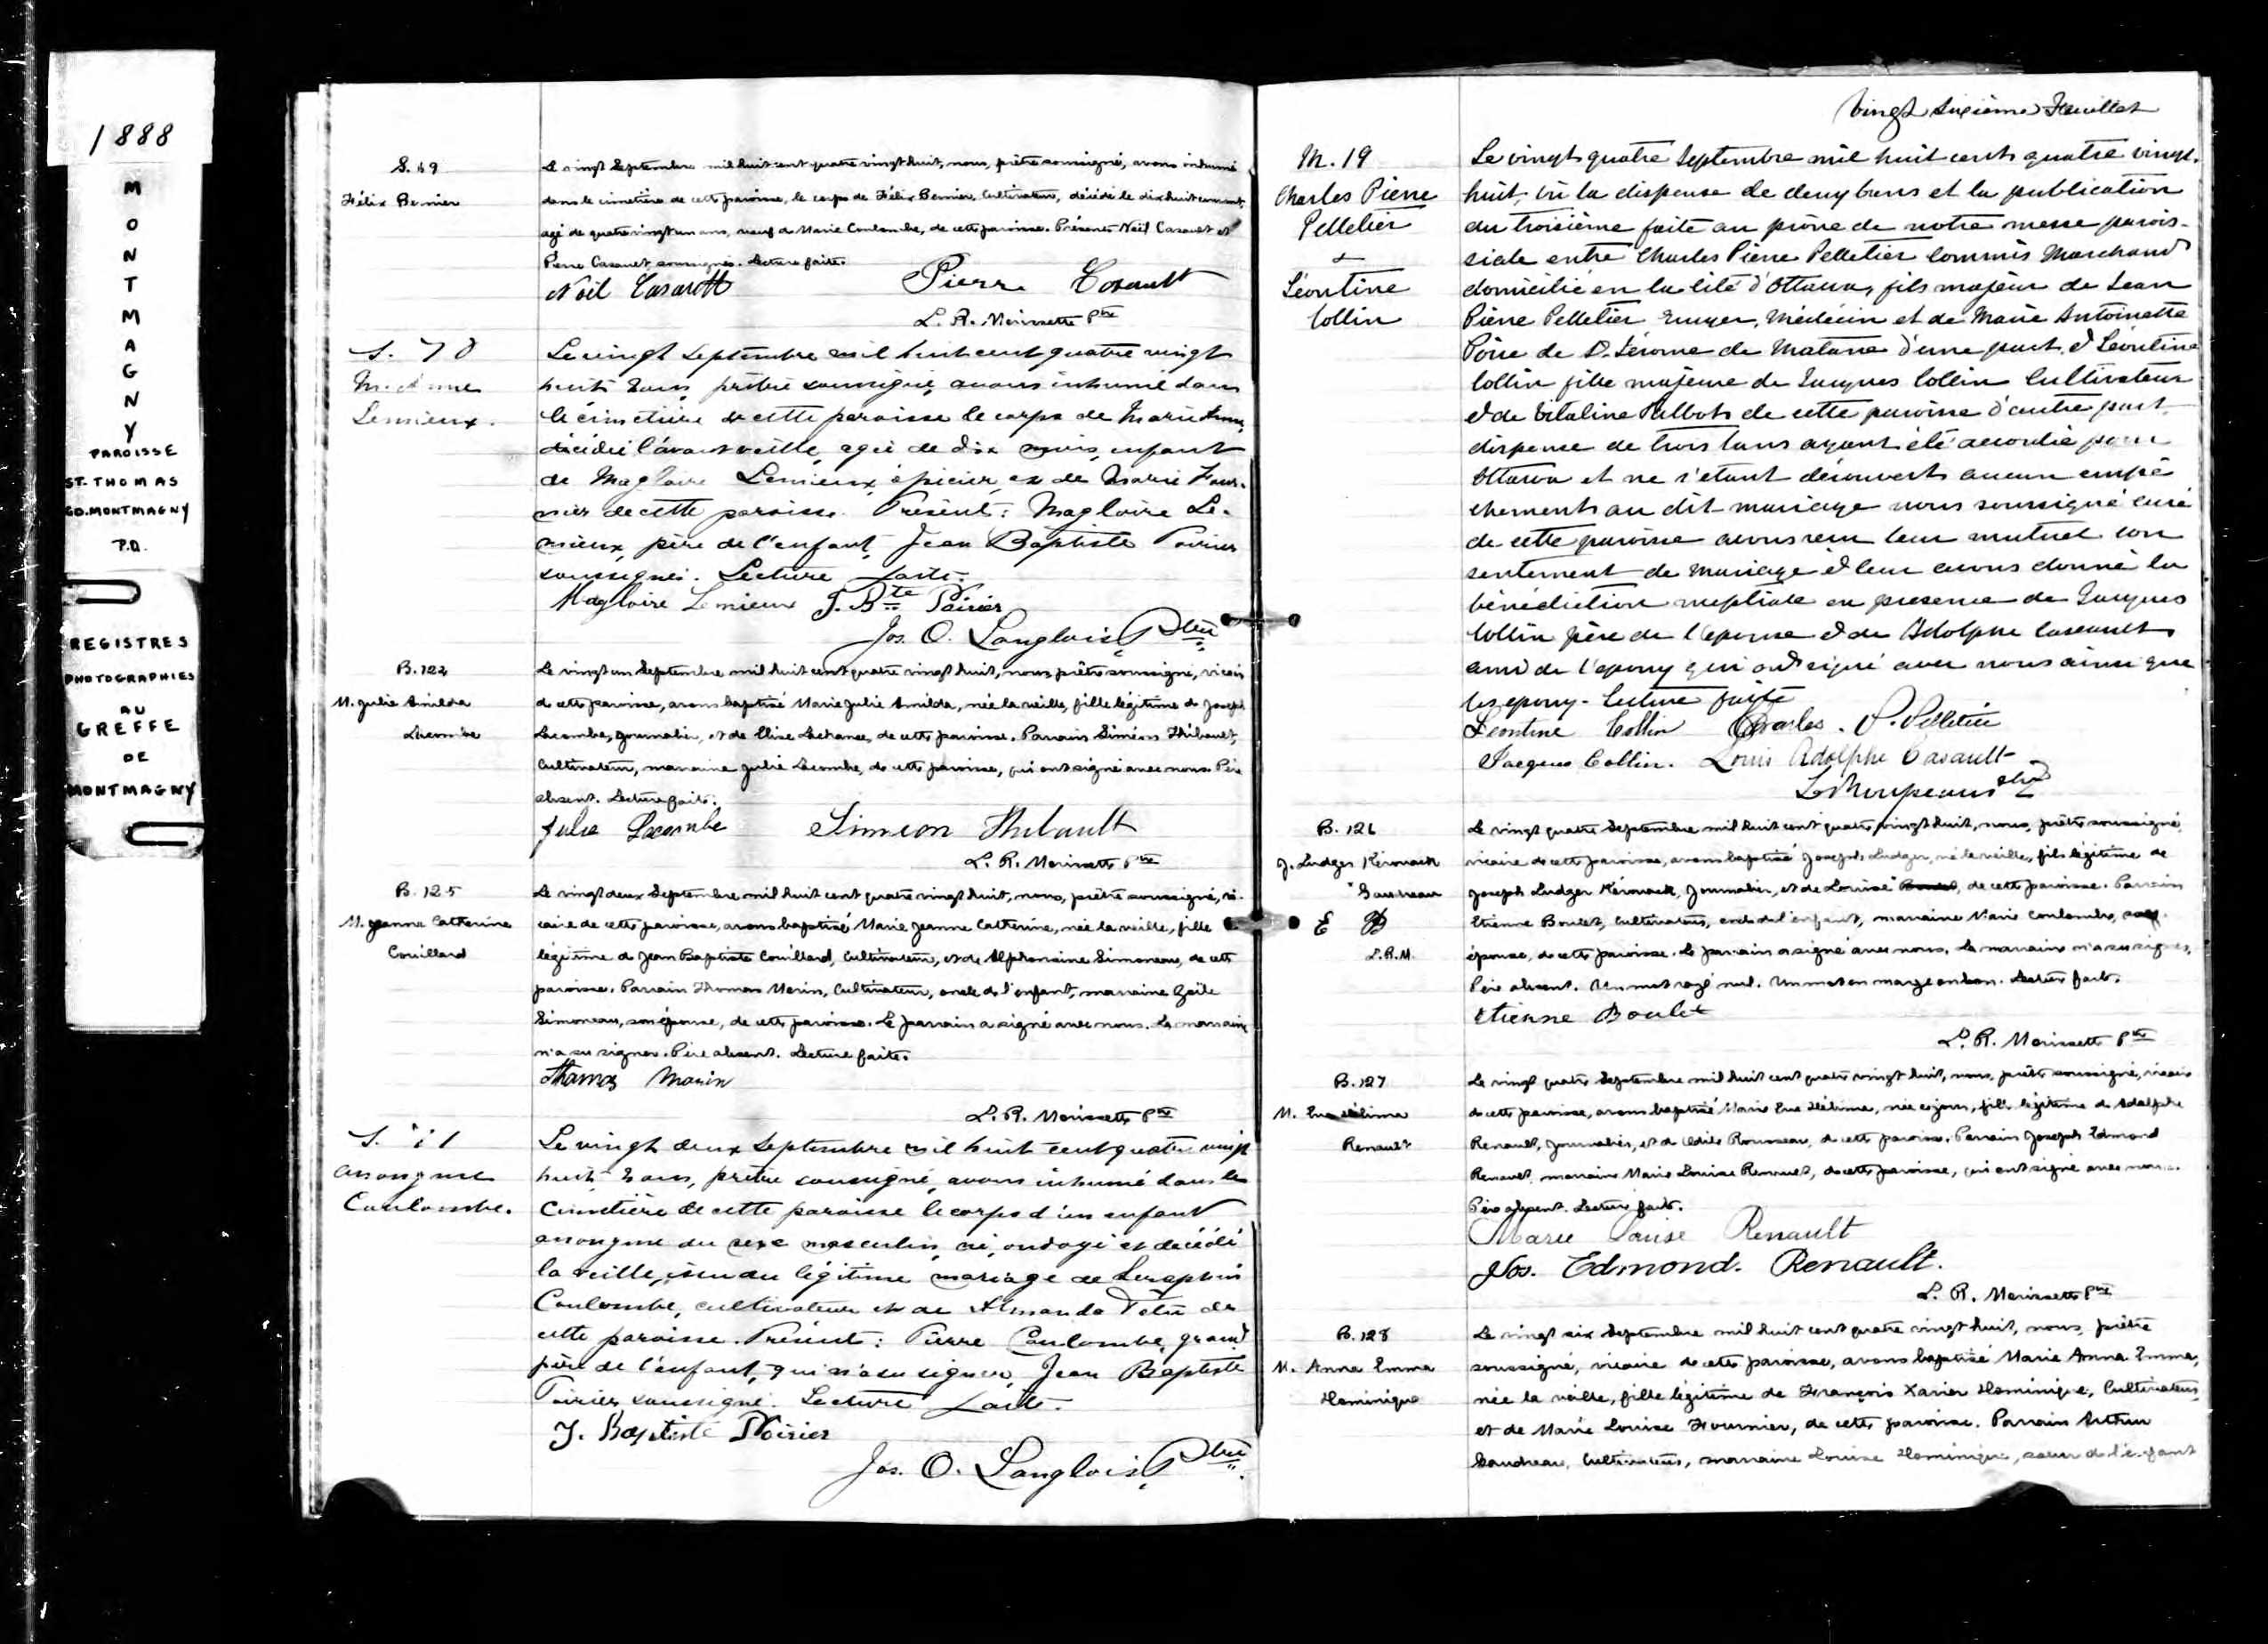 1888
MONTMAGNY
PAROISSE
ST. THOMAS
CO. MONTMAGNY
P.Q.
REGISTRES
PHOTOGRAPHIES
AU
GREFFE
DE
MONTMAGNY
S. 69
Félix Bernier
Le vingt Septembre mil huit cent quatre vingt huit, nous, prêtre soussigné, avons inhumé
dans le cimetière de cette paroisse, le corps de Félix Bernier, Cultivateur, décédé le dix huit courant,
agé de quatre vingt un ans, veuf de Marie Coulombe, de cette paroisse. Présents Noël Casault et
Pierre Casault, soussignés. Lecture faite.
Noël Casault Pierre Casault
L. R. Morissette Ptre
S. 70
M. Anne
Lemieux.
Le vingt Septembre mil huit cent quatre vingt
huit, nous, prêtre soussigné, avons inhumé dans
le cimetière de cette paroisse le corps de Marie Anne,
décédée l'avant veille, agée de dix mois, enfant
de Magloire Lemieux, épicier, et de Marie Four-
nier de cette paroisse. Présent: Magloire Le-
mieux, père de l'enfant, Jean Baptiste Poirier
soussignés. Lecture faite.
Magloire Lemieux J. Bte Poirier
Jos. O. Langlois, Ptre
B. 124
M. Julie Amilda
Lacombe
Le vingt un Septembre mil huit cent quatre vingt huit, nous, prêtre soussigné, vicaire
de cette paroisse, avons baptisé Marie Julie Amilda, née la veille, fille légitime de Joseph
Lacombe, journalier, et de Elise Lachance, de cette paroisse. Parrain Siméon Thibault,
Cultivateur, marraine Julie Lacombe, de cette paroisse, qui ont signé avec nous. Père
absent. Lecture faite.
Julie Lacombe Simeon Thibault
L. R. Morissette Ptre
B. 125
M. Jeanne Catherine
Couillard
Le vingt deux Septembre mil huit cent quatre vingt huit, nous, prêtre soussigné, vi-
caire de cette paroisse, avons baptisé Marie Jeanne Catherine, née la veille, fille
légitime de Jean Baptiste Couillard, Cultivateur, et de Alphonsine Simoneau, de cette
paroisse. Parrain Thomas Morin, Cultivateur, oncle de l'enfant, marraine Zoïle
Simoneau, son épouse, de cette paroisse. Le parrain a signé avec nous. La marraine
n'a su signer. Père absent. Lecture faite.
Thomas Morin
L. R. Morissette Ptre
S. 71
anonyme
Coulombe.
Le vingt deux Septembre mil huit cent quatre vingt
huit, nous, prêtre soussigné, avons inhumé dans le
cimetière de cette paroisse le corps d'un enfant
anonyme du sexe masculin, né, ondoyé et décédé
la veille, issu du légitime mariage de Seraphin
Coulombe, cultivateur et de Amanda Têtu de
cette paroisse. Présent: Pierre Coulombe, grand
père de l'enfant, qui n'a su signer, Jean Baptiste
Poirier soussigné. Lecture faite.
J. Baptiste Poirier
Jos. O. Langlois, Ptre
Vingt Sixième Feuillet
M. 19
Charles Pierre
Pelletier
&
Léontine
Collin
Le vingt quatre Septembre mil huit cent quatre vingt-
huit, vû la dispense de deux bans et la publication
du troisième faite au prône de notre messe parois-
siale entre Charles Pierre Pelletier Commis Marchand
domicilié en la Cité d'Ottawa, fils majeur de Jean
Pierre Pelletier Ecuyer, Médecin et de Marie Antoinette
Poire de St. Jérome de Matane d'une part, & Léontine
Collin fille majeure de Jacques Collin Cultivateur
& de Vitaline Talbot de cette paroisse d'autre part,
dispense de trois bans ayant été accordée pour
Ottawa et ne s'étant découvert aucun empê
chement au dit mariage nous soussigné curé
de cette paroisse avons reçu leur mutuel con
sentement de mariage & leur avons donné la
bénédiction nuptiale en presence de Jacques
Collin père de l'epouse & de Adolphe Casault
ami de l'epoux qui ont signé avec nous ainsi que
les epoux. Lecture faite
Leontine Collin Charles. P. Pelletier
Jacques Collin. Louis Adolphe Casault
B. 126
J. Ludger Kérouack
"Gaudreau
E
L.R.M.
Le vingt quatre Septembre mil huit cent quatre vingt huit, nous, prêtre soussigné,
vicaire de cette paroisse, avons baptisé Joseph Ludger, né la veille, fils légitime de
Joseph Ludger Kérouack, Journalier, et de Louise Boulet, de cette paroisse. Parrain
Etienne Boulet, Cultivateur, oncle de l'enfant, marraine Marie Coulombe, son
épouse, de cette paroisse. Le parrain a signé avec nous. La marraine n'a su signer.
Père absent. Un mot rayé nul. Un mot en marge en bon. Lecture faite.
Etienne Boulet
L. R. Morissette Ptre
B. 127
M. Eva
Renault
Le vingt quatre Septembre mil huit cent quatre vingt huit, nous, prêtre soussigné, vicaire
de cette paroisse, avons baptisé Marie Eva, née ce jour, fille légitime de Adolphe
Renault, journalier, et de Odile Rousseau, de cette paroisse. Parrain Joseph Edmond
Renault, marraine Marie Louise Renault, de cette paroisse, qui ont signé avec nous.
Père absent. Lecture faite.
Marie Louise Renault
Jos. Edmond. Renault.
L. R. Morissette Ptre
B. 128
M. Anna Emma
Dominique
Le vingt six Septembre mil huit cent quatre vingt huit, nous, prêtre
soussigné, vicaire de cette paroisse, avons baptisé Marie Anna Emma,
née la veille, fille légitime de François Xavier Dominique, Cultivateur,
et de Marie Louise Fournier, de cette paroisse. Parrain Arthur
Gaudreau, Cultivateur, marraine Louise Dominique, soeur de l'enfant